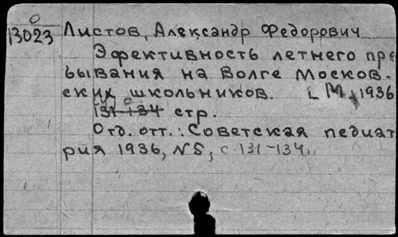 0
13023 Листов, Александр Федорович
Эфективность летнего пре
бывания на Волге Москов-
ских школьников. [М, 1936
131-134 стр.
Отд. отт.: Советская педиат
рия 1936, N5, с 131-134